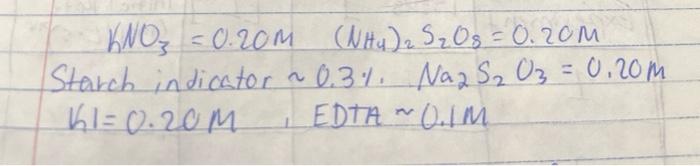 KNO₃ = 0.20M (NH₄)₂S₂O₈ = 0.20M
Starch indicator ~ 0.3%. Na₂S₂O₃ = 0.20M
KI = 0.20M , EDTA ~ 0.1M